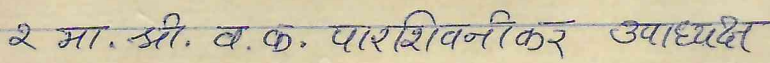 २ मा. श्री. व. क. पारशिवनीकर उपाध्यक्ष